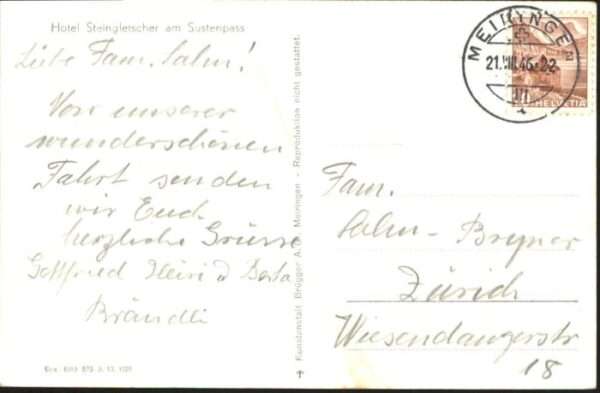 Hotel Steingletscher am Sustenpass
Liebe Fam. Salm!
Von unserer
wunderschönen
Fahrt senden
wir Euch
herzliche Grüsse
Gottfried Heiri u Berta
Brändli
Kunstanstalt Brügger A.G. Meiringen - Reproduktion nicht gestattet.
MEIRINGEN
21.VIII.46-22
HELVETIA
Fam.
Salm-Bryner
Zürich
Wiesendangerstr
18